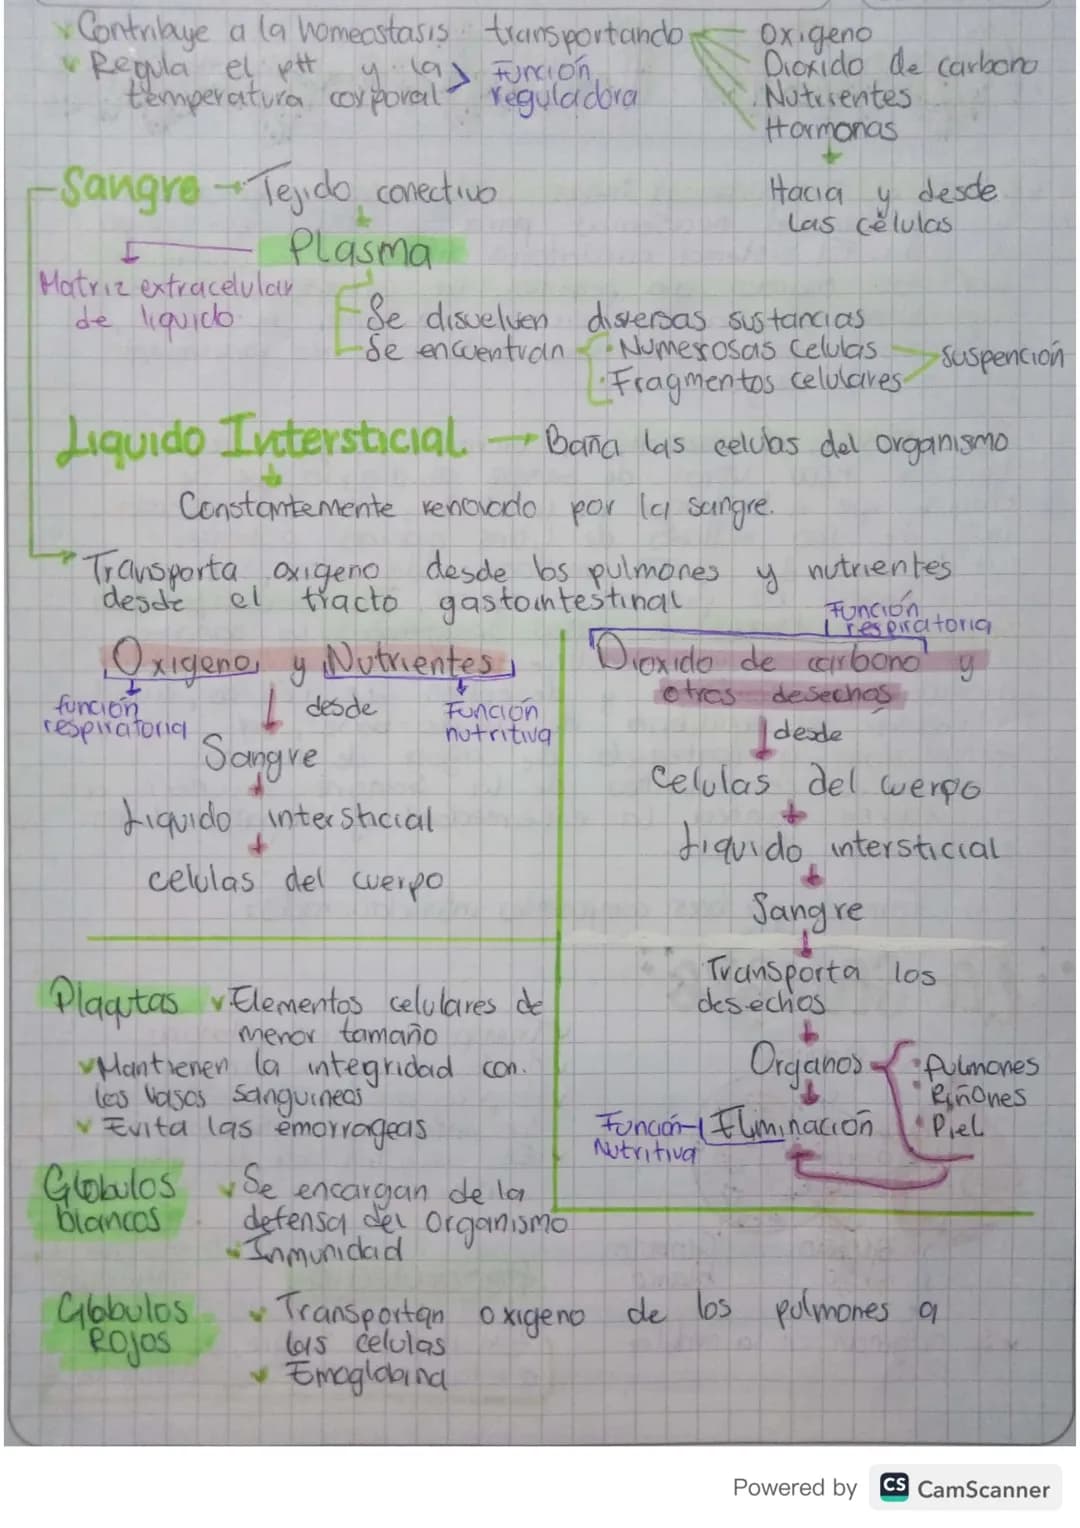 Contribuye a la homeostasis transportando
Oxigeno
Dioxido de carbono
Nutrientes
Hormonas
Hacia y desde
las células
Regula el pH y la
temperatura corporal
Función
reguladora
Sangre → Tejido conectivo
Plasma
Matriz extracelular
de liquido
Se disuelven diversas sustancias
Se encuentran
• Numerosas celulas
• Fragmentos celulares
suspención
Liquido Intersticial → Baña las celulas del organismo
Constantemente renovado por la sangre.
Transporta oxigeno desde los pulmones y nutrientes
desde el tracto gastointestinal
Oxigeno y Nutrientes
función
respiratoria
desde
Función
nutritiva
Sangre
Liquido intersticial
celulas del cuerpo
Función
respiratoria
Dioxido de carbono y
otros desechos
desde
Celulas del cuerpo
Liquido intersticial
Sangre
Transporta los
desechos
Organos
• Pulmones
• Riñones
• Piel
Función
Nutritiva
Eliminación
Plaqutas
Elementos celulares de
menor tamaño
Mantienen la integridad con.
los vasos sanguineos
Evita las emorrageas
Globulos
blancos
Se encargan de la
defensa del organismo
Inmunidad
Globulos
Rojos
Transportan oxigeno de los pulmones a
las celulas
Emoglobina
Powered by CS CamScanner